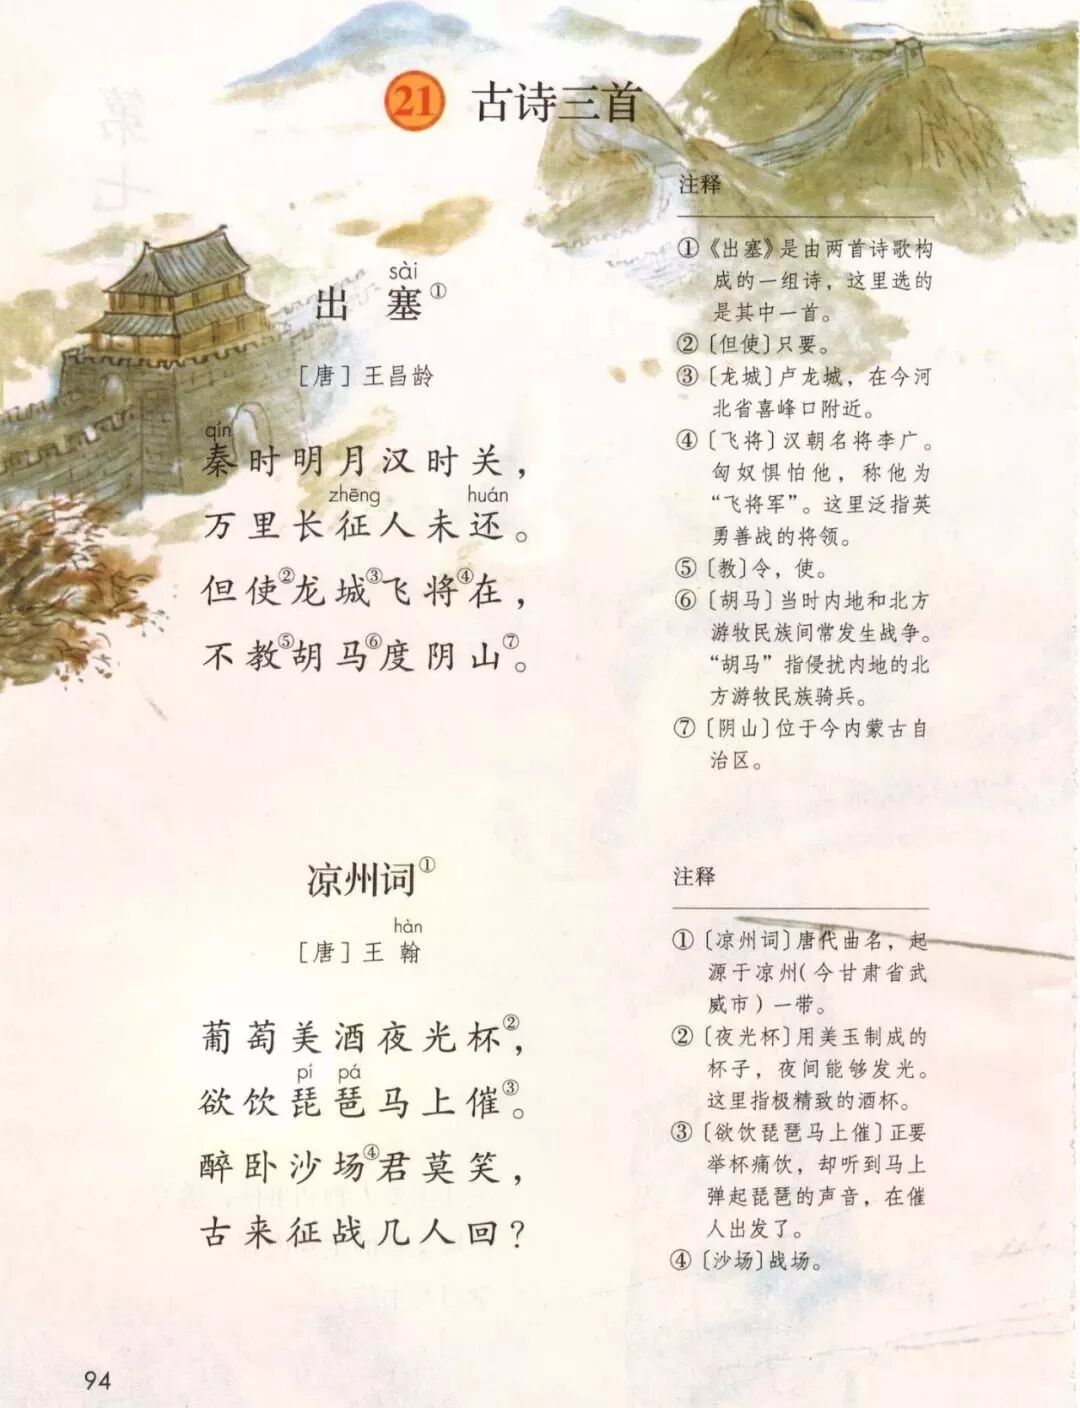 第七
21 古诗三首
sài
出塞①
[唐] 王昌龄
qín
秦时明月汉时关，
zhēng huán
万里长征人未还。
但使②龙城③飞将④在，
不教⑤胡马⑥度阴山⑦。
注释
①《出塞》是由两首诗歌构
成的一组诗，这里选的
是其中一首。
②〔但使〕只要。
③〔龙城〕卢龙城，在今河
北省喜峰口附近。
④〔飞将〕汉朝名将李广。
匈奴惧怕他，称他为
“飞将军”。这里泛指英
勇善战的将领。
⑤〔教〕令，使。
⑥〔胡马〕当时内地和北方
游牧民族间常发生战争。
“胡马”指侵扰内地的北
方游牧民族骑兵。
⑦〔阴山〕位于今内蒙古自
治区。
凉州词①
hàn
[唐] 王翰
葡萄美酒夜光杯②，
pí pá
欲饮琵琶马上催③。
醉卧沙场④君莫笑，
古来征战几人回？
注释
①〔凉州词〕唐代曲名，起
源于凉州（今甘肃省武
威市）一带。
②〔夜光杯〕用美玉制成的
杯子，夜间能够发光。
这里指极精致的酒杯。
③〔欲饮琵琶马上催〕正要
举杯痛饮，却听到马上
弹起琵琶的声音，在催
人出发了。
④〔沙场〕战场。
94